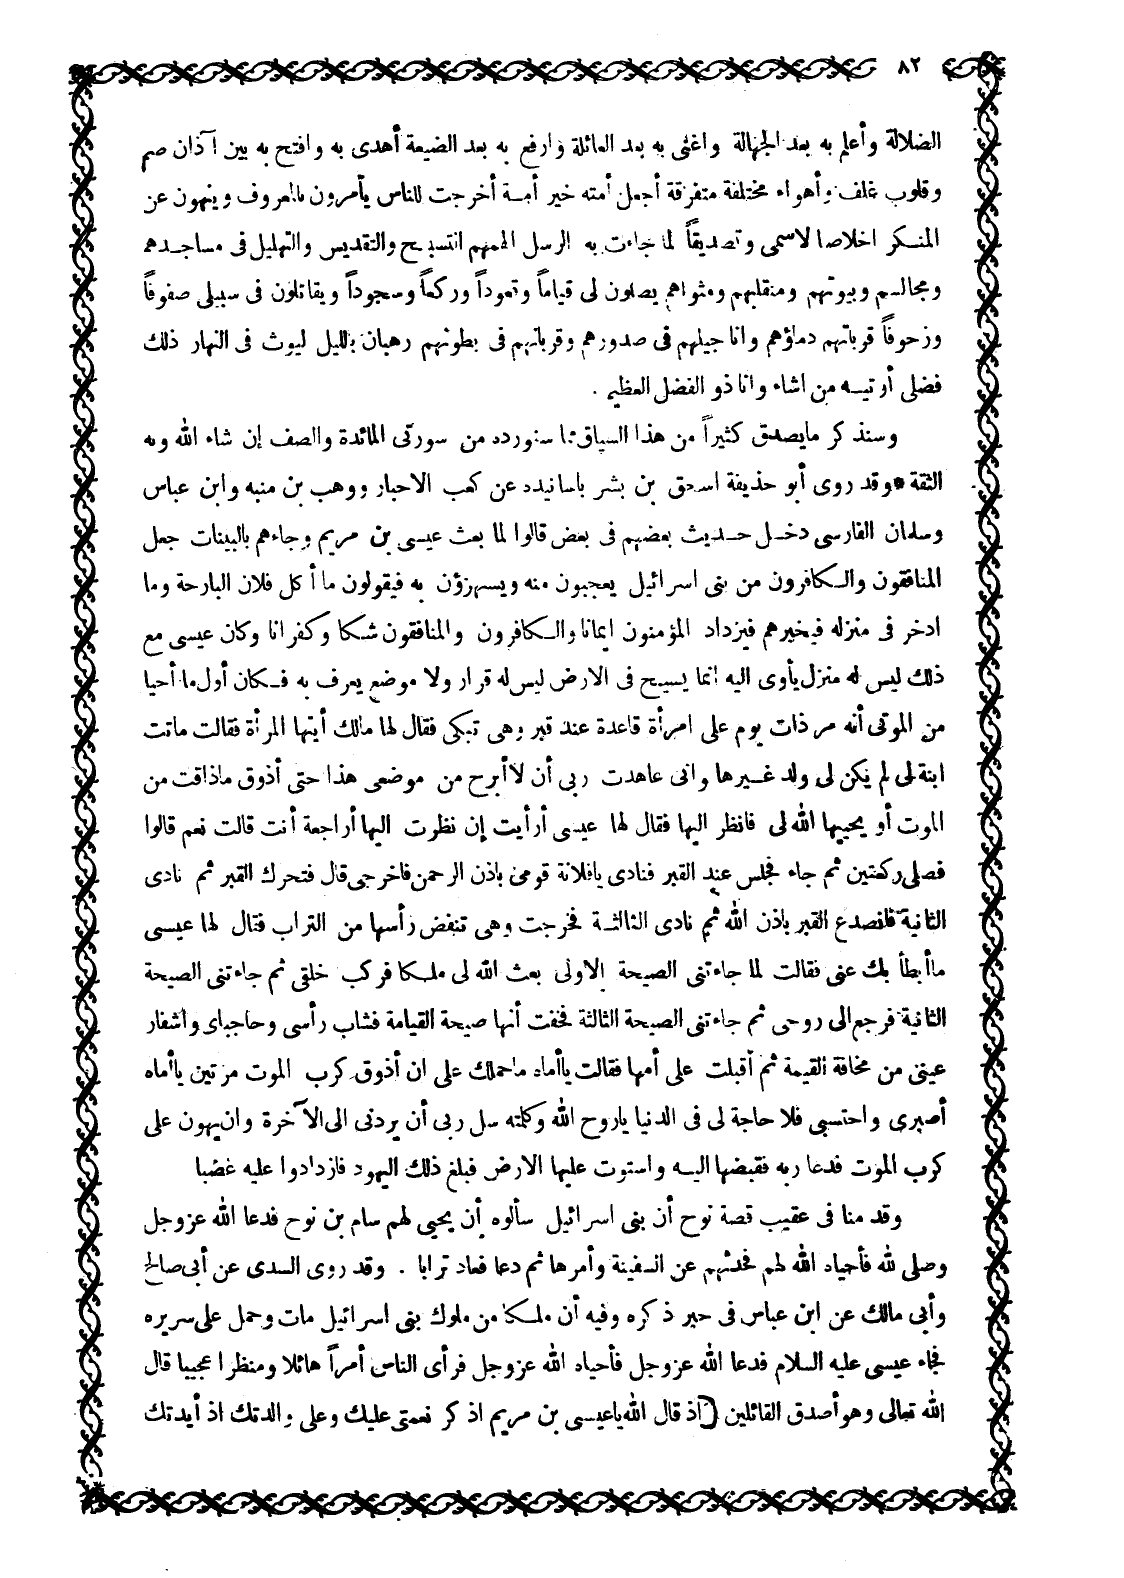 ٨٢
الضلالة وأعلم به بعد الجهالة واغنى به بعد العائلة وارفع به بعد الضيعة أهدى به وافتح به بين آذان صم
وقلوب غلف وأهواء مختلفة متفرقة أجعل أمته خير أمة أخرجت للناس يأمرون بالمعروف وينهون عن
المنكر اخلاصا لاسمى وتصديقاً لما جاءت به الرسل الهمهم التسبيح والتقديس والتهليل فى مساجدهم
ومجالسهم وبيوتهم ومنقلبهم ومثواهم يصلون لى قياماً وقعوداً وركعاً وسجوداً ويقاتلون فى سبيلى صفوفاً
وزحوفاً قرباتهم دماؤهم وانا جيلهم فى صدورهم وقرباتهم فى بطونهم رهبان بالليل ليوث فى النهار ذلك
فضلى أوتيه من اشاء وانا ذو الفضل العظيم .
وسنذكر مايصدق كثيراً من هذا السياق مما سنورده من سورتى المائدة والصف إن شاء الله وبه
الثقة * وقد روى أبو حذيفة اسحق بن بشر باسانيده عن كعب الاحبار ووهب بن منبه وابن عباس
وسلمان الفارسى دخل حديث بعضهم فى بعض قالوا لما بعث عيسى بن مريم وجاءهم بالبينات جعل
المنافقون والكافرون من بنى اسرائيل يعجبون منه ويستهزؤن به فيقولون ما أكل فلان البارحة وما
ادخر فى منزله فيخبرهم فيزداد المؤمنون ايمانا والكافرون والمنافقون شكا وكفرانا وكان عيسى مع
ذلك ليس له منزل يأوى اليه انما يسيح فى الارض ليس له قرار ولا موضع يعرف به فكان أول ما أحيا
من الموتى أنه مر ذات يوم على امرأة قاعدة عند قبر وهى تبكى فقال لها مالك أيتها المرأة فقالت ماتت
ابنة لى لم يكن لى ولد غيرها وانى عاهدت ربى أن لا أبرح من موضعى هذا حتى أذوق ماذاقت من
الموت أو يحييها الله لى فانظر اليها فقال لها عيسى أرأيت إن نظرت اليها أراجعة أنت قالت نعم قالوا
فصلى ركعتين ثم جاء فجلس عند القبر فنادى يافلانة قومى باذن الرحمن فاخرجى قال فتحرك القبر ثم نادى
الثانية فانصدع القبر باذن الله ثم نادى الثالثة فخرجت وهى تنفض رأسها من التراب فقال لها عيسى
ما أبطأ بك عنى فقالت لما جاءتنى الصيحة الاولى بعث الله لى ملكا فركب خلقى ثم جاءتنى الصيحة
الثانية فرجع الى روحى ثم جاءتنى الصيحة الثالثة فخفت أنها صيحة القيامة فشاب رأسى وحاجباى واشفار
عينى من مخافة القيمة ثم أقبلت على أمها فقالت يا أماه ما حملك على ان أذوق كرب الموت مرتين يا أماه
أصبرى واحتسبى فلا حاجة لى فى الدنيا ياروح الله وكلمته سل ربى أن يردنى الى الآخرة وان يهون على
كرب الموت فدعا ربه فقبضها اليه واستوت عليها الارض فبلغ ذلك اليهود فازدادوا عليه غضبا
وقدمنا فى عقيب قصة نوح أن بنى اسرائيل سألوه أن يحيى لهم سام بن نوح فدعا الله عزوجل
وصلى لله فأحياه الله لهم فحدثهم عن السفينة وأمرها ثم دعا فعاد ترابا . وقد روى السدى عن أبى صالح
وأبى مالك عن ابن عباس فى خبر ذكره وفيه أن ملكا من ملوك بنى اسرائيل مات وحمل على سريره
فجاء عيسى عليه السلام فدعا الله عزوجل فأحياه الله عزوجل فرأى الناس أمراً هائلا ومنظرا عجيبا قال
الله تعالى وهو أصدق القائلين ( اذ قال الله ياعيسى بن مريم اذكر نعمتى عليك وعلى والدتك اذ أيدتك